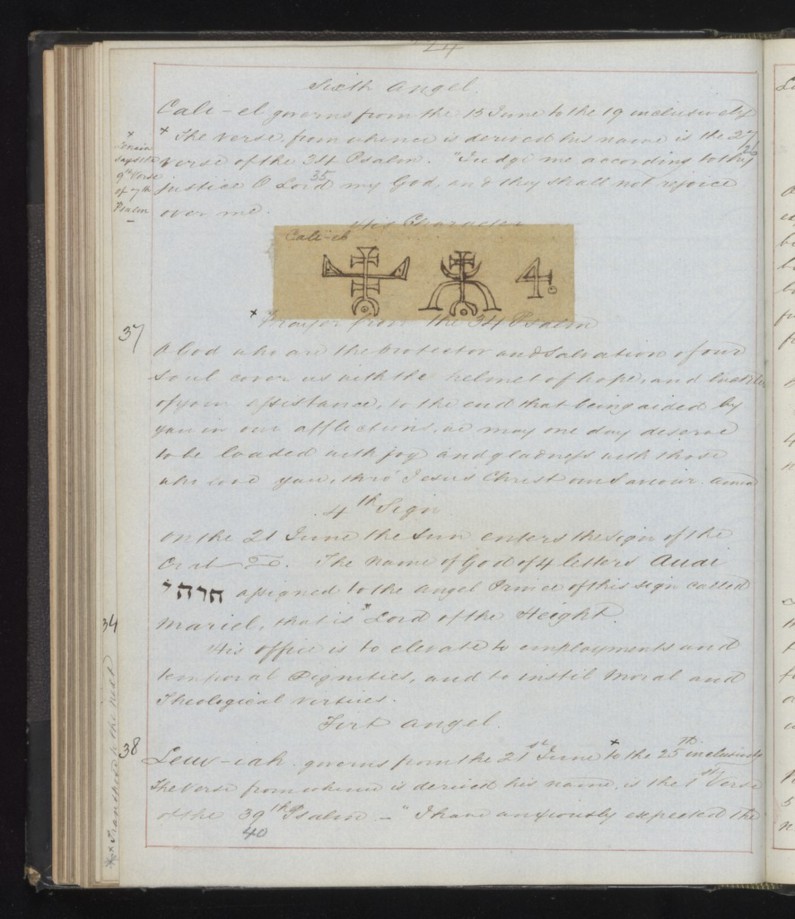 24
Sixth Angel.
Cali-el governs from the 15 June to the 19 inclusively
x The verse, from whence is derived his name is the 27
26
verse of the 34 Psalm. "Judge me according to thy
35
justice O Lord my God, and they shall not rejoice
over me.
x
Lenain
says its
9th Verse
of 7th
Psalm
His Character
Cali-eh
4.
x Prayer from the 34 Psalm
37
O God who are the protector and Salvation of our
Soul cover us with the helmet of hope, and
of your assistance, to the end that being aided by
you in our afflictions, we may one day deserve
to be loaded with joy and gladness with those
who love you, thro' Jesus Christ our Saviour. Amen
4th Sign
On the 21 June the Sun enters the sign of the
♋. The name of God of 4 letters
assigned to the Angel Prince of this sign called
34
Mariel, that is "Lord of the Height.
His office is to elevate to employments and
temporal Dignities, and to instil moral and
Theological virtues.
First Angel.
38
Leuv-iah governs from the 21st June x to the 25th inclusively
The verse from whence is derived his name, is the 1st Verse
of the 39th Psalm - "I have anxiously expected the
40
to the next